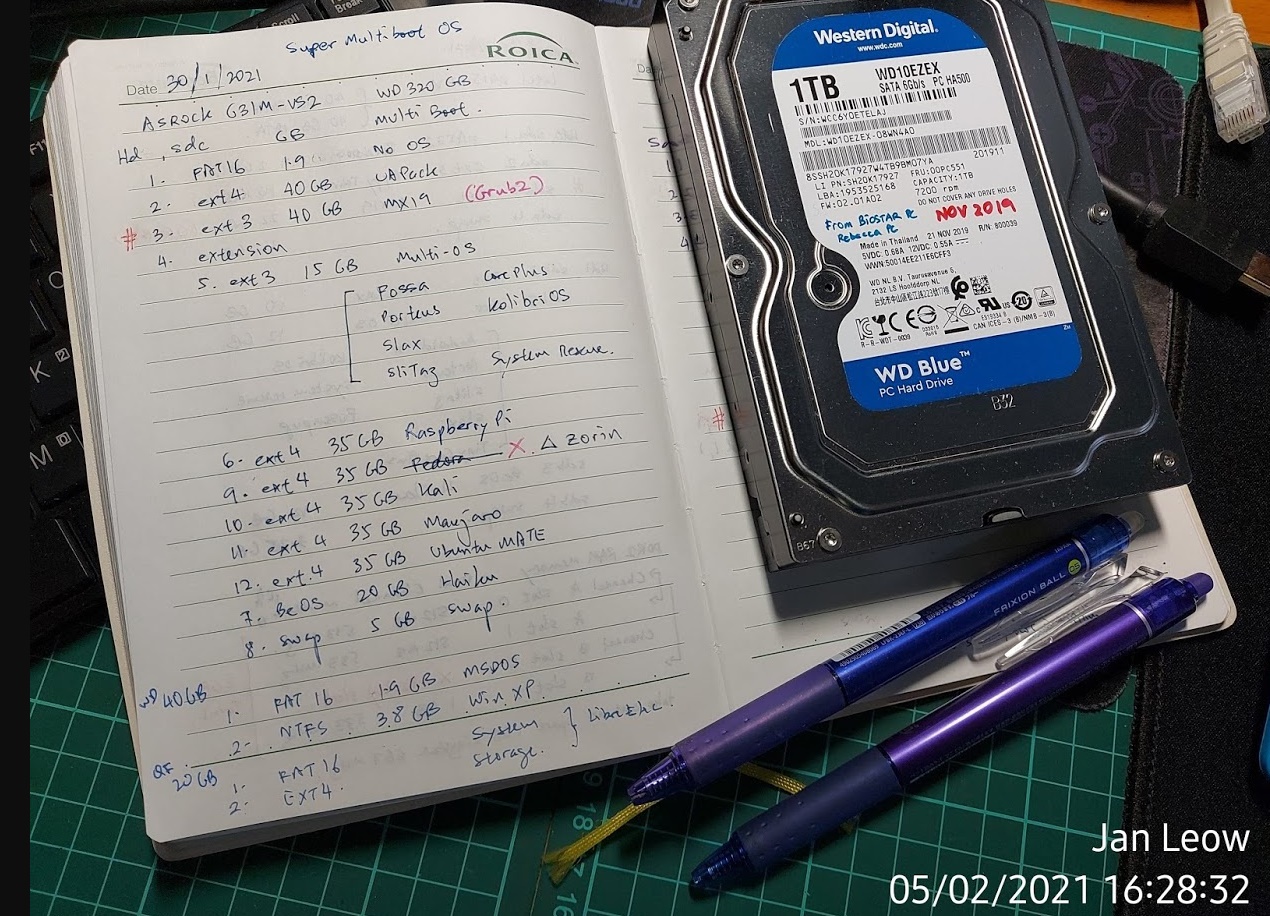 Super Multiboot OS
ROICA
Date 30/1/2021
ASRock G31M-VS2 WD 320 GB
Multi Boot.
Hd, sdc GB
1. FAT16 1.9 No OS
2. ext4 40 GB UAPack
# 3. ext3 40 GB MX19 (Grub2)
4. extension
5. ext3 15 GB Multi-OS
Fossa CorePlus
Porteus KolibriOS
Slax
SliTaz System Rescue.
6. ext4 35 GB Raspberry Pi
9. ext4 35 GB Fedora X. Δ Zorin
10. ext4 35 GB Kali
11. ext4 35 GB Manjaro
12. ext.4 35 GB Ubuntu MATE
7. BeOS 20 GB Haiku
8. swap 5 GB swap.
40GB
1. FAT 16 1.9 GB MSDOS
2. NTFS 3.8 GB Win XP.
QF 20 GB
1. FAT16 System
2. EXT4. Storage. } LibreElec.
Da
#
Western Digital.
www.wdc.com
1TB
WD10EZEX
SATA 6Gb/s PC HA500
S/N:WCC6Y0ETELAJ
MDL:WD10EZEX-08WN4A0
8SSH20K17927W4TB9BM07YA 201911
LI PN:SH20K17927 FRU:00PC551
LBA:1953525168 CAPACITY:1TB
FW:02.01A02 7200 rpm
DO NOT COVER ANY DRIVE HOLES
From BIOSTAR PC
Rebecca PC
NOV 2019
Made in Thailand 21 NOV 2019 R/N: 800039
5VDC: 0.68A 12VDC: 0.55A
WWN:50014EE211E6CFF3
WD NL B.V. Taurusavenue 5,
2132 LS Hoofddorp NL
R-R-WDT-0009
CAN ICES-3 (B)/NMB-3(B)
WD Blue™
PC Hard Drive
B32
B67
FRIXION BALL
Scroll
Break
K
M
19 18 17
Jan Leow
05/02/2021 16:28:32